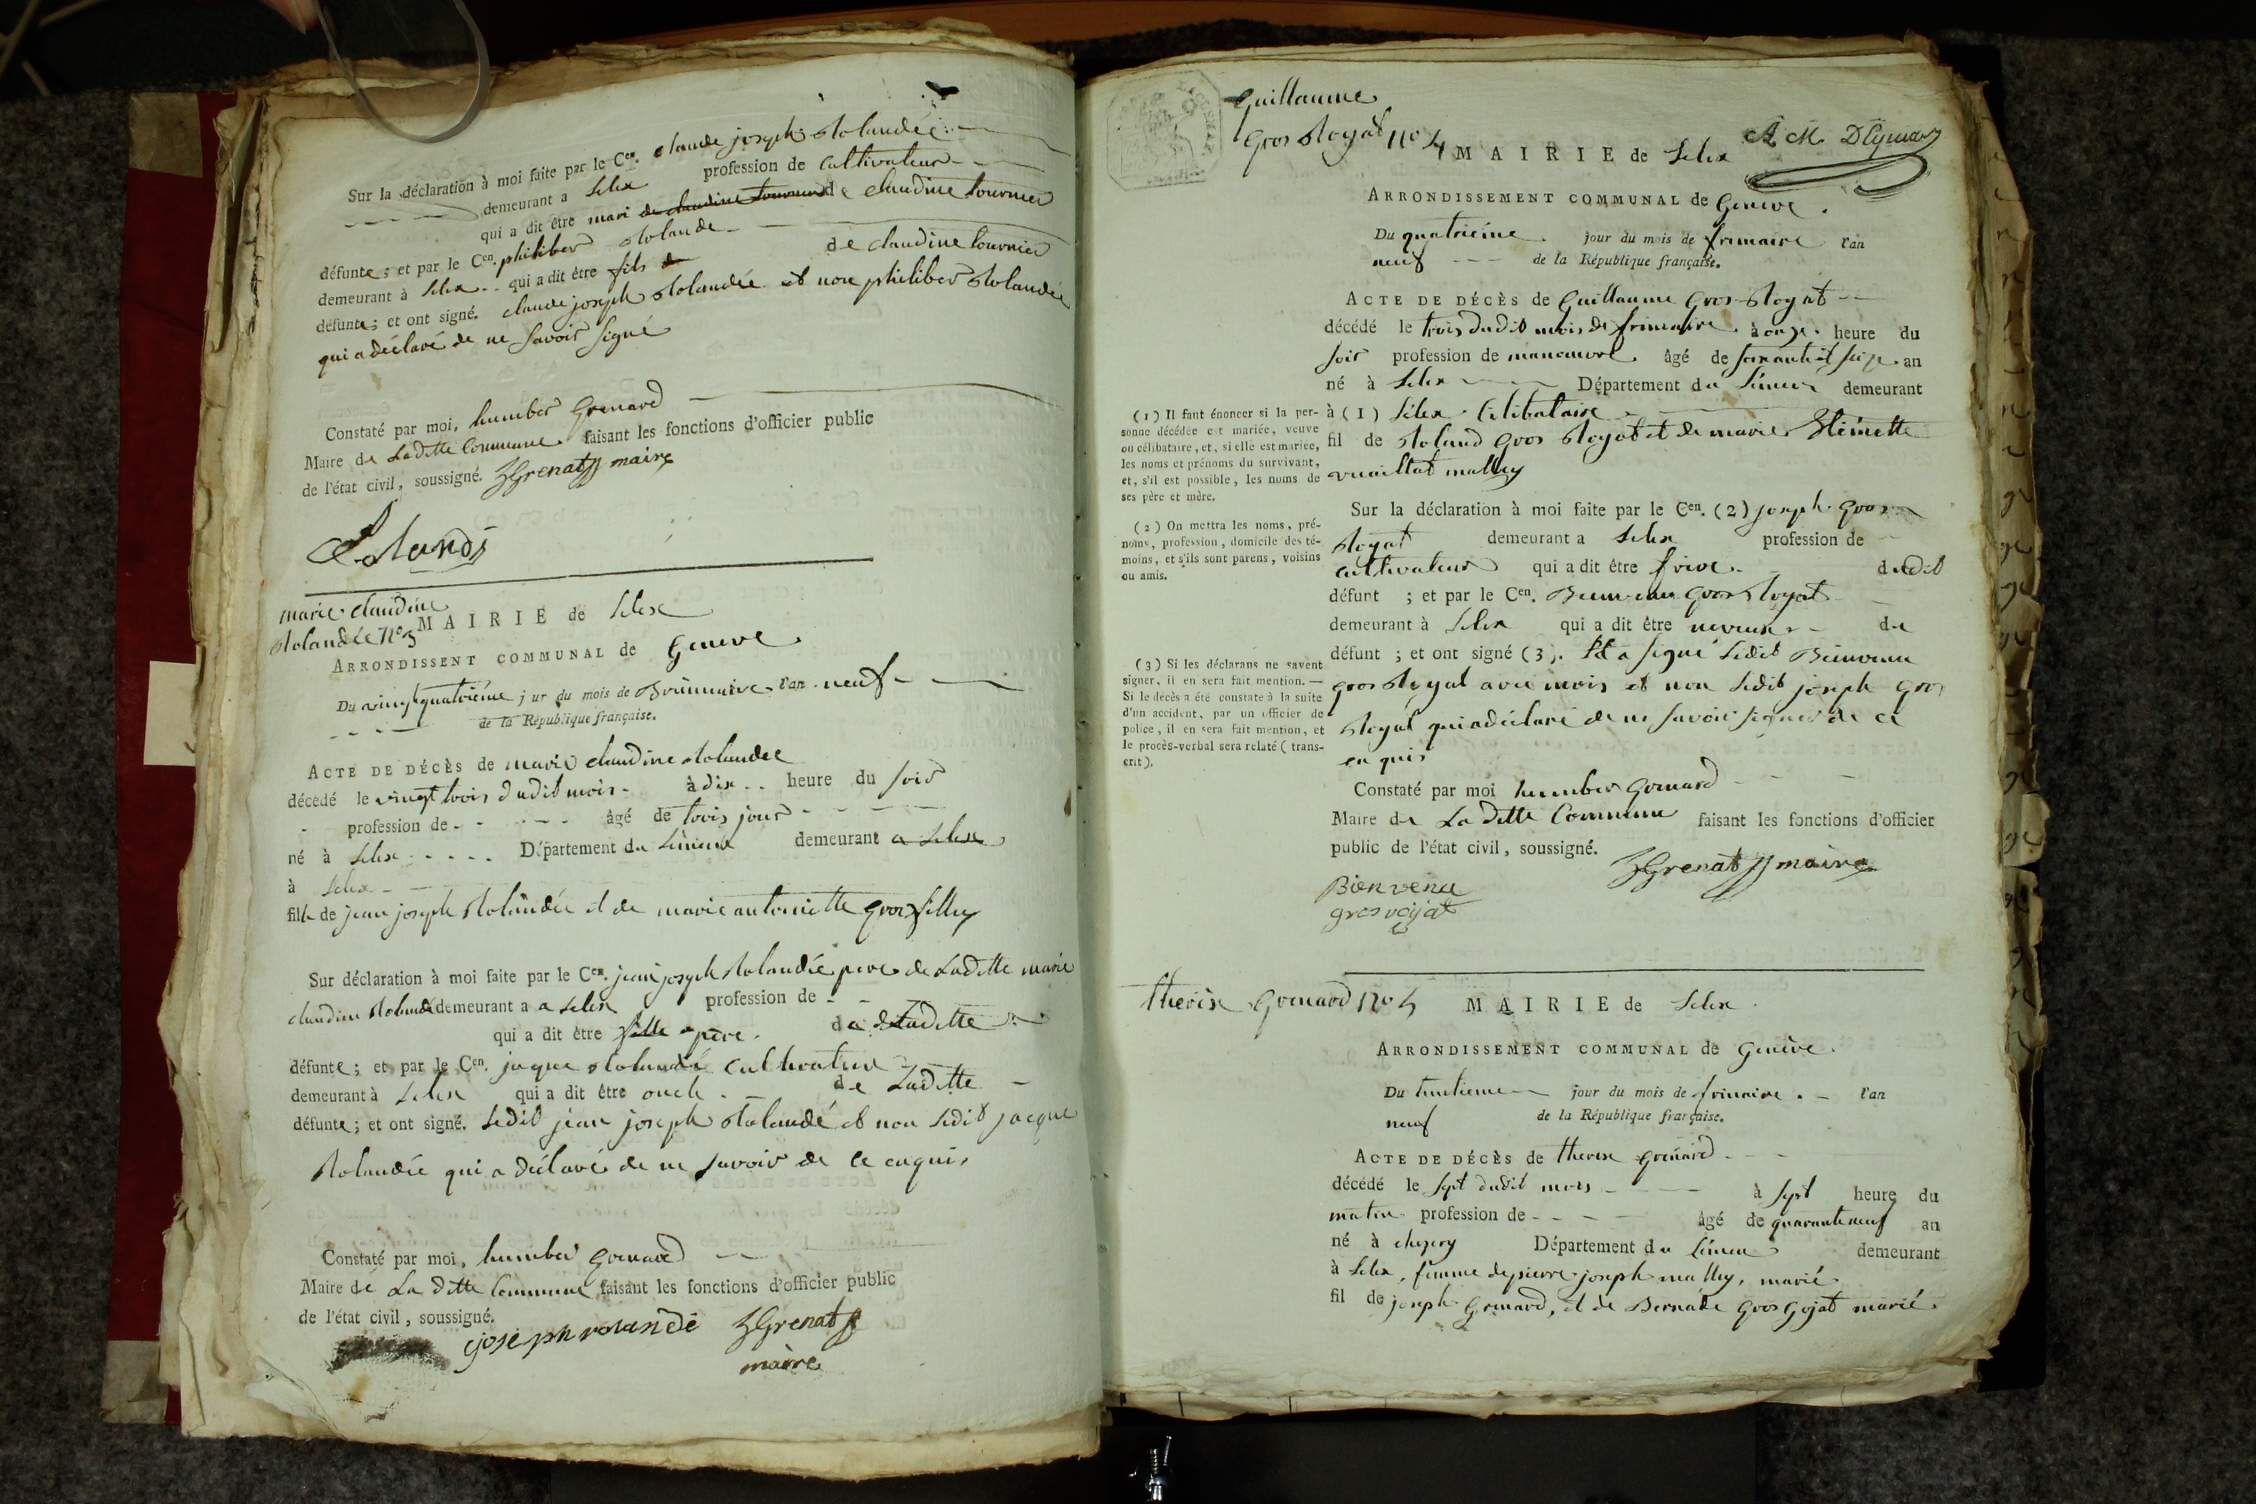 Sur la déclaration à moi faite par le Cen. claude joseph Rolandée
demeurant a Lelex profession de Cultivateur
qui a dit être mari de claudine tournier de claudine tournier
défunte; et par le Cen. philiber Rolande
demeurant à Lelex qui a dit être fils de claudine tournier
défunte; et ont signé. claude joseph Rolandée et non philiber Rolandée
qui a déclaré de ne savoir signé
Constaté par moi, humber Grenard
Maire de Laditte Commune faisant les fonctions d'officier public
de l'état civil, soussigné. hGrenat maire
C Rolandé
marie claudine
Rolandée No 3
MAIRIE de Lelex
ARRONDISSENT COMMUNAL de Geneve
Du vingt quatriéme jur du mois de Brumaire l'an neuf
de la République française.
ACTE DE DÉCÈS de marie claudine Rolandée
décédé le vingt trois dudit mois à dix heure du soir
profession de âgé de trois jour
né à Lelex Département du Léman demeurant a Lelex
à Lelex
fille de jean joseph Rolandée et de marie antoinette Grosfilley
Sur déclaration à moi faite par le Cen. jean joseph Rolandée pere de Laditte marie
claudine Rolandé demeurant a a Lelex profession de
qui a dit être fille père. de Laditte
défunte; et par le Cen. jaque Rolandé Cultivateur
demeurant à Lelex qui a dit être oncle de Laditte
défunte; et ont signé. Ledit jean joseph Rolandé et non Ledit jacque
Rolandée qui a déclaré de ne savoir de ce enquis
Constaté par moi, humber Grenard
Maire de La ditte Commune faisant les fonctions d'officier public
de l'état civil, soussigné.
joseph rolandé hGrenat
maire
Guillaume
Gros Royat No 4
MAIRIE de Lelex
ARRONDISSEMENT COMMUNAL de Geneve.
Du quatriéme jour du mois de frimaire l'an
neuf de la République française.
ACTE DE DÉCÈS de Guillaume Gros Royat
décédé le trois dudit mois de frimaire à onze heure du
soir profession de manœuvre âgé de soixante et seize an
né à Lelex Département du Léman demeurant
à (1) Lélex Célibataire
fil de Roland Gros Royat et de marie
(1) Il faut énoncer si la per-
sonne décédée est mariée, veuve
ou célibataire, et, si elle est mariée,
les noms et prénoms du survivant,
et, s'il est possible, les noms de
ses père et mère.
Sur la déclaration à moi faite par le Cen. (2) joseph Gros
Royat demeurant a Lelex profession de
cultivateur qui a dit être frère dudit
défunt ; et par le Cen. Bienvenu Gros Royat
demeurant à Lelex qui a dit être neveux du
défunt ; et ont signé (3). Et a signé Ledit Bienvenu
gros Royat avec mois et non Ledit joseph Gros
Royat qui a déclaré de ne savoir signer de ce
enquis
(2) On mettra les noms, pré-
noms, profession, domicile des té-
moins, et s'ils sont parens, voisins
ou amis.
(3) Si les déclarans ne savent
signer, il en sera fait mention. —
Si le décès a été constaté à la suite
d'un accident, par un officier de
police, il en sera fait mention, et
le procès-verbal sera relaté (trans-
crit).
Constaté par moi humber Grenard
Maire de La ditte Commune faisant les fonctions d'officier
public de l'état civil, soussigné.
hGrenat maire
Bienvenu
grosroyat
therèse Grenard No 5 MAIRIE de Lelex
ARRONDISSEMENT COMMUNAL de Genève.
Du huitieme jour du mois de frimaire l'an
neuf de la République française.
ACTE DE DÉCÈS de therese Grenard
décédé le sept dudit mois à sept heure du
matin profession de âgé de quaranteneuf an
né à chezery Département du Léman demeurant
à Lelex, femme de pierre joseph malley, marié
fil de joseph Grenard, et de Bernade Gros Gojat marié